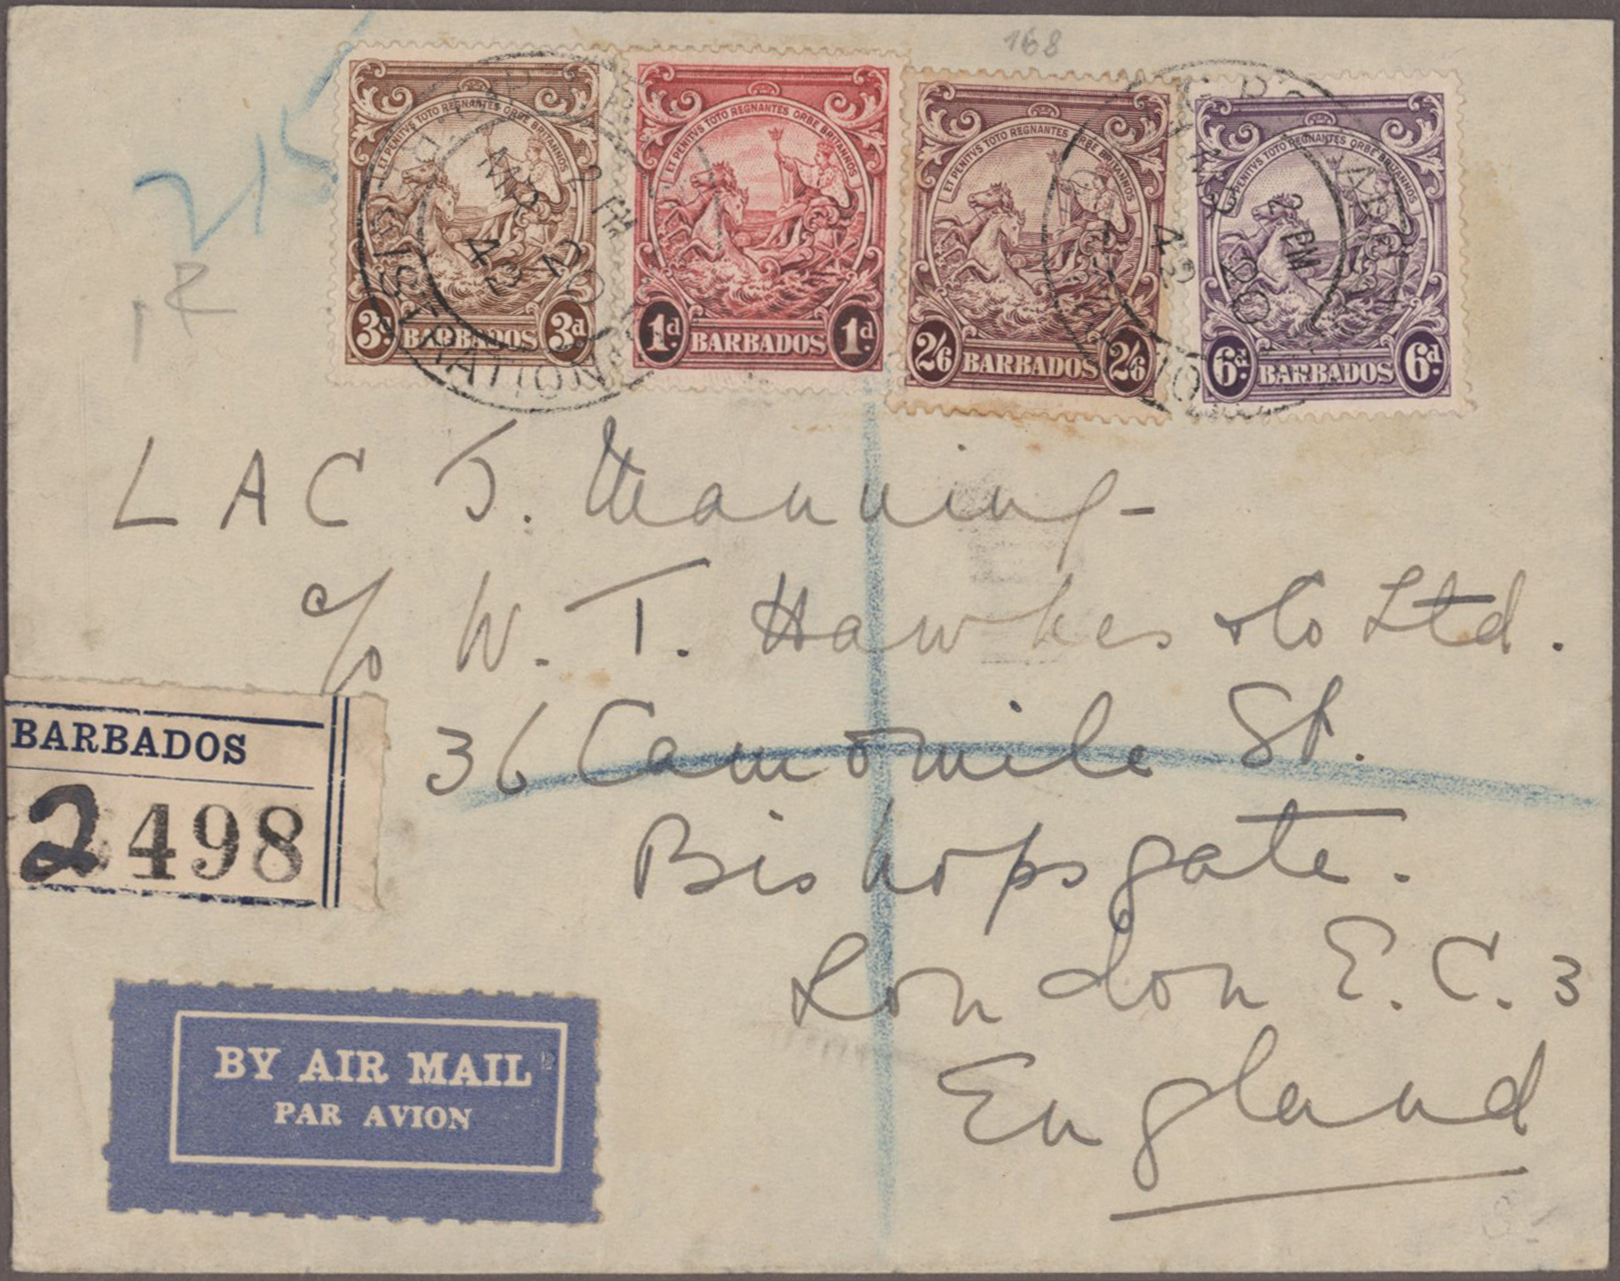 168
215
ET PENITVS TOTO REGNANTES ORBE BRITANNOS
3d BARBADOS 3d
ET PENITVS TOTO REGNANTES ORBE BRITANNOS
1d BARBADOS 1d
ET PENITVS TOTO REGNANTES ORBE BRITANNOS
2/6 BARBADOS 2/6
ET PENITVS TOTO REGNANTES ORBE BRITANNOS
6d BARBADOS 6d
REGISTRATION
2 PM
LAC J. Manning -
c/o W. T. Hawkes & Co Ltd.
36 Camomile St.
Bishopsgate.
London E.C. 3
England
BARBADOS
2498
BY AIR MAIL
PAR AVION